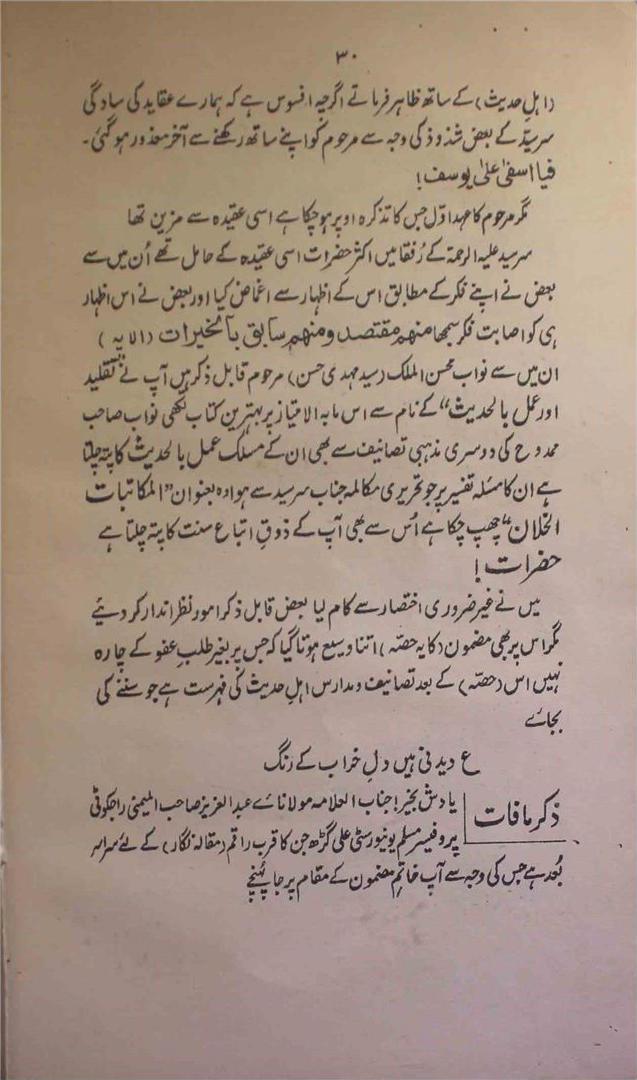 ۳۰
(اہلِ حدیث) کے ساتھ ظاہر فرماتے اگرچہ افسوس ہے کہ ہمارے عقاید کی سادگی
سرسیدؒ کے بعض شذوذ کی وجہ سے مرحوم کو اپنے ساتھ رکھنے سے آخر معذور ہو گئی۔
فیا اسفیٰ علیٰ یوسف!
مگر مرحوم کا عہد اوّل جس کا تذکرہ اوپر ہو چکا ہے اسی عقیدہ سے مزین تھا
سرسید علیہ الرحمۃ کے رُفقا میں اکثر حضرات اسی عقیدہ کے حامل تھے اُن میں سے
بعض نے اپنے فکر کے مطابق اس کے اظہار سے اغماض کیا اور بعض نے اس اظہار
ہی کو اصابت فکر سمجھا منہم مقتصد و منہم سابق بالخیرات (الایہ)
ان میں سے نواب محسن الملک (سید مہدی حسن) مرحوم قابل ذکر ہیں آپ نے "تقلید
اور عمل بالحدیث" کے نام سے اس مابہ الامتیاز پر بہترین کتاب لکھی نواب صاحب
ممدوح کی دوسری مذہبی تصانیف سے بھی ان کے مسلک عمل بالحدیث کا پتہ چلتا
ہے ان کا مسٔلہ تفسیر پر جو تحریری مکالمہ جناب سرسید سے ہوا وہ بعنوان "المکاتبات
الخلان" چھپ چکا ہے اُس سے بھی آپ کے ذوقِ اتباع سنت کا پتہ چلتا ہے
حضرات!
میں نے غیر ضروری اختصار سے کام لیا بعض قابل ذکر امور نظر انداز کر دئیے
مگر اس پر بھی مضمون (کا یہ حصّہ) اتنا وسیع ہوتا گیا کہ جس پر بغیر طلب عفو کے چارہ
نہیں اس (حصّہ) کے بعد تصانیف و مدارس اہلِ حدیث کی فہرست ہے جو سننے کی
بجاۓ
ع دیدنی ہیں دلِ خراب کے رنگ
ذکر مافات
یادش بخیر! جناب العلامہ مولاناۓ عبد العزیز صاحب المیمنی راجکوٹی
پروفیسر مسلم یونیورسٹی علی گڑھ جن کا قرب راقم (مقالہ نگار) کے لئے سراسر
بُعد ہے جس کی وجہ سے آپ خاتمِ مضمون کے مقام پر جا پہُنچے